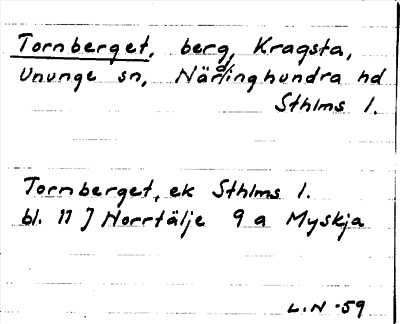 Tornberget, berg, Kragsta,
Ununge sn, Närdinghundra hd
Sthlms l.
Tornberget, ek Sthlms l.
bl. 11 J Norrtälje 9 a Myskja
L.N -59